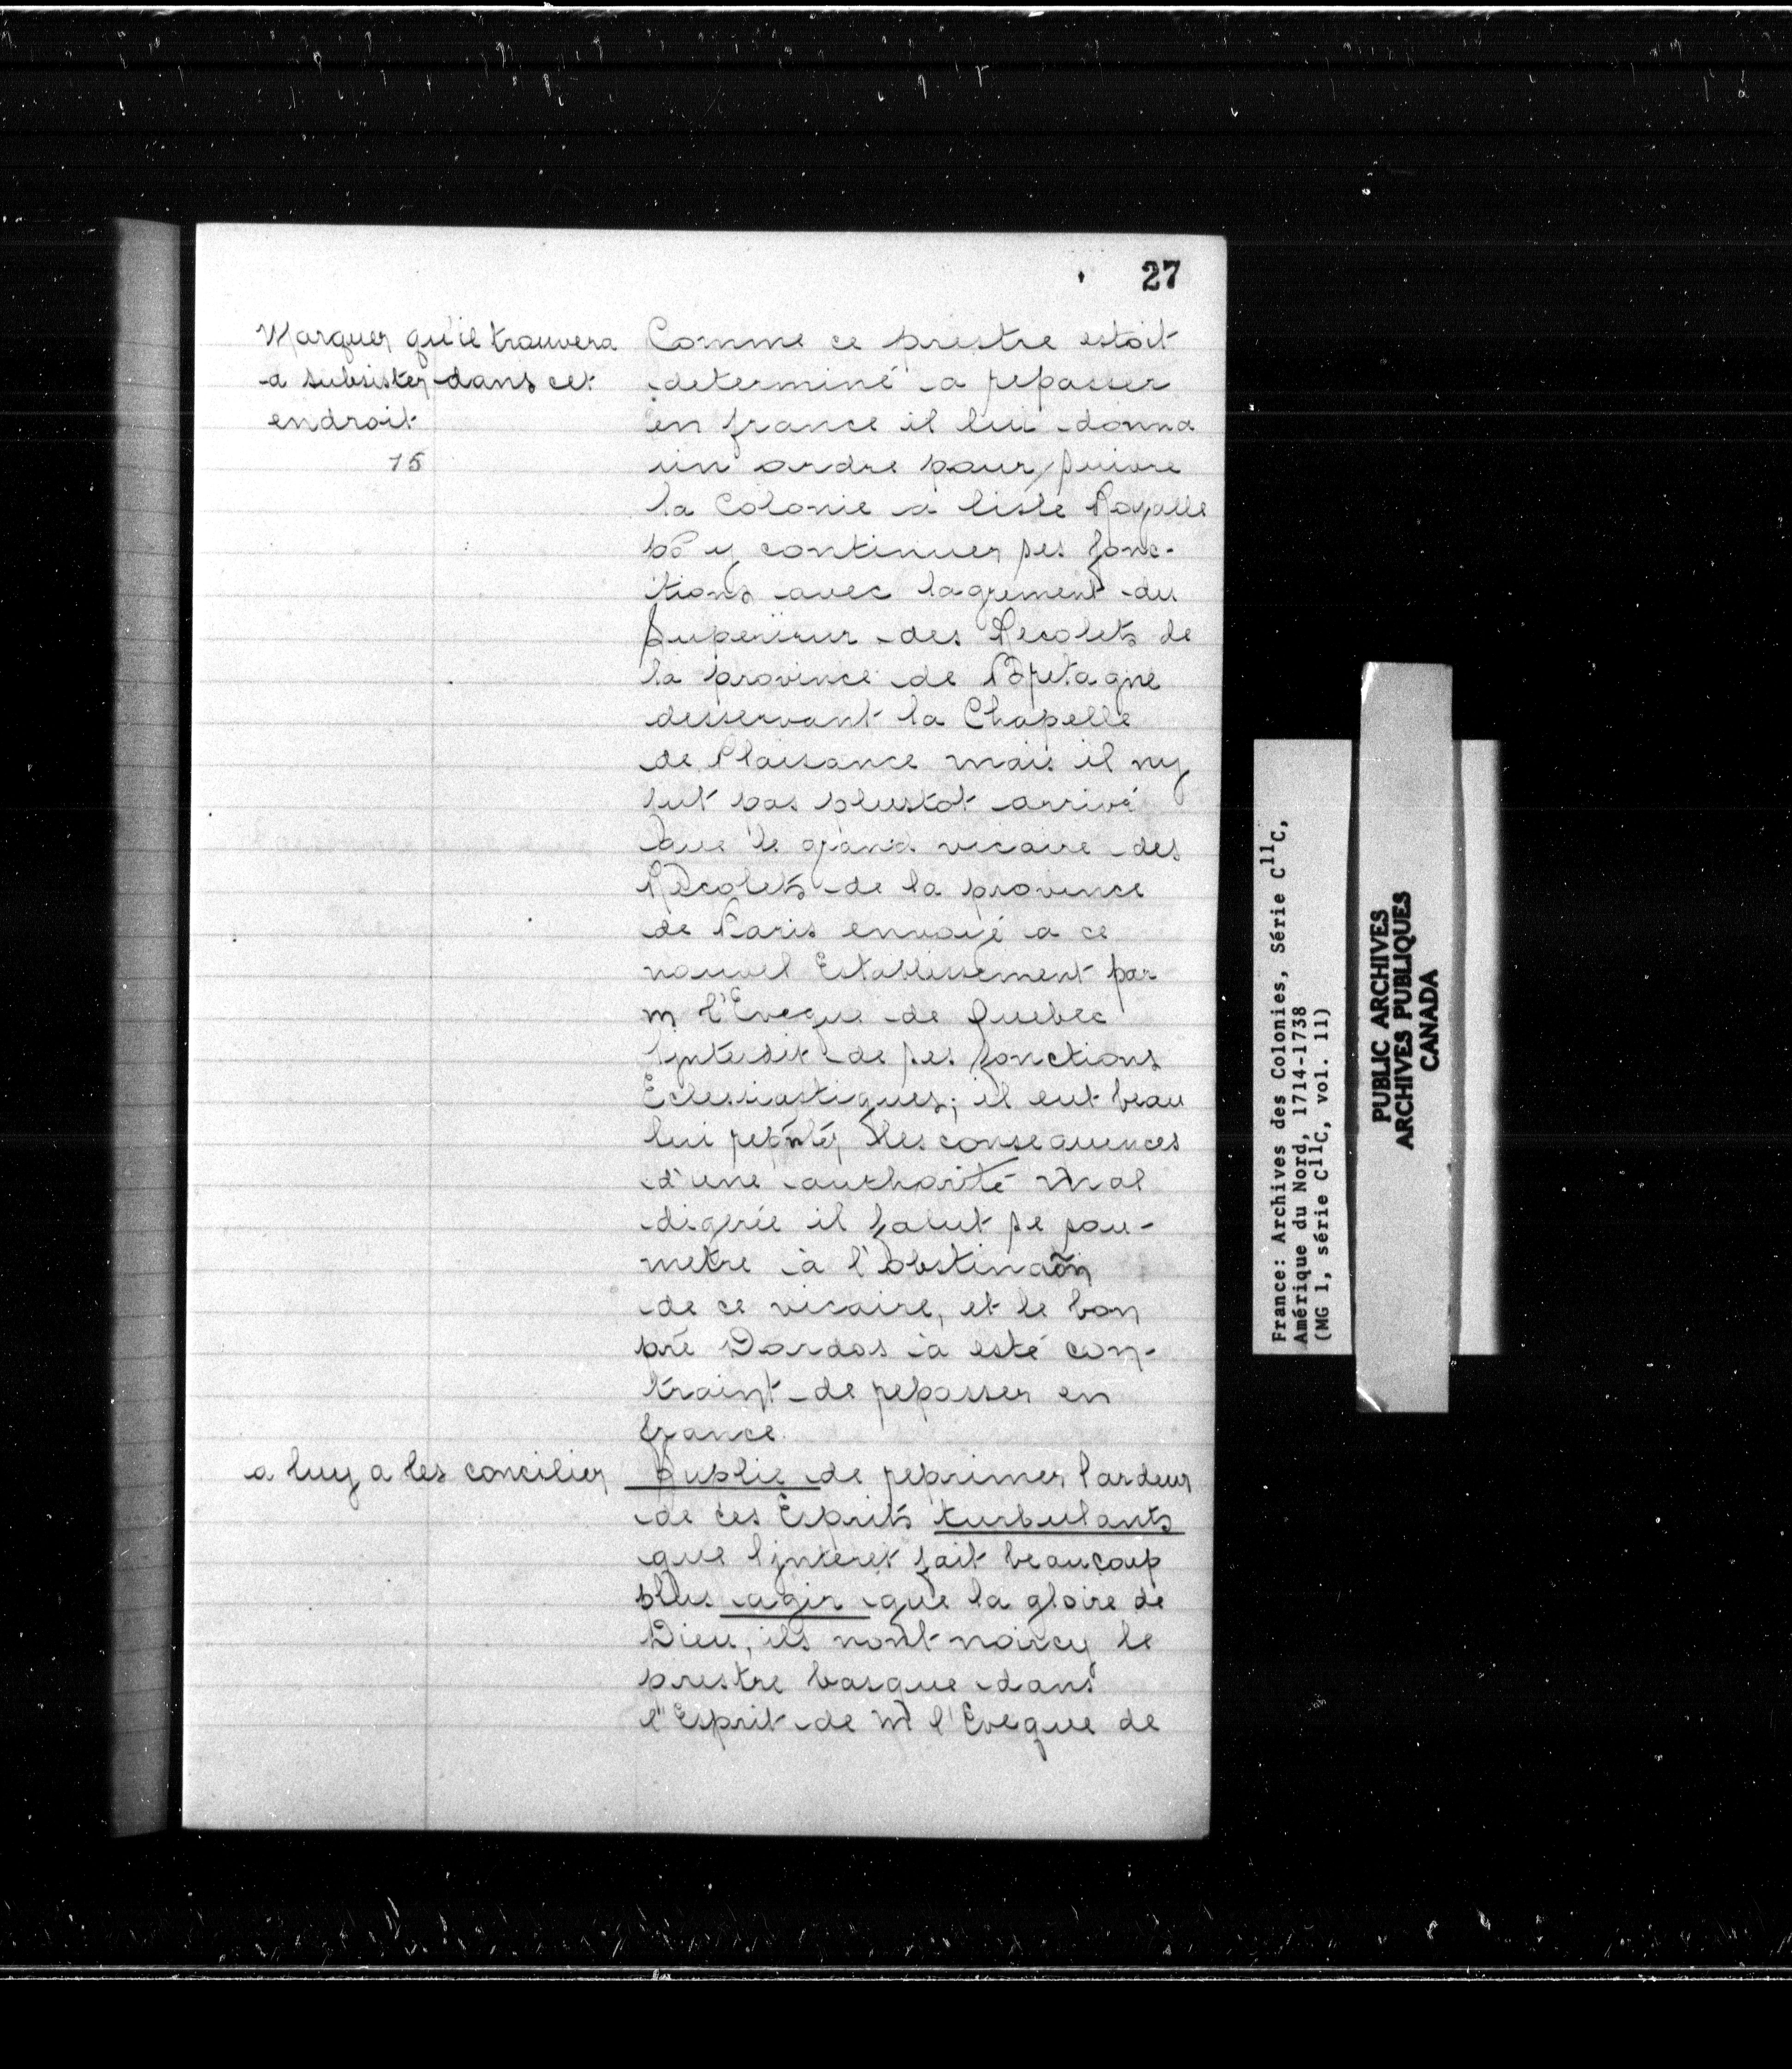 27
Marquer qu'il trouvera
a subsister dans cet
endroit
15
Comme ce prestre estoit
determiné a repasser
en france il lui donna
un ordre pour suivre
la Colonie a lisle Royalle
po y continuer ses fonc-
tions avec lagrement du
Superieur des Recolets de
la province de Bretagne
desservant la Chapelle
de Plaisance mais il ny
fut pas plustot arrivé
que le grand vicaire des
Recolets de la province
de Paris envoyé a ce
nouvel Establissement par
m l'Eveque de Quebec
Interdit de ses fonctions
Eclesiastiques; il eut beau
lui repñter les consequences
d'une authorité mal
digerée il falut se sou-
metre à l'obstinaõn
de ce vicaire, et le bon
pre Dardas à esté con-
traint de repasser en
france
a luy a les concilier
Suplie de reprimer lardeur
de ces Esprits turbulants
que linteret fait beaucoup
plus agir que la gloire de
Dieu, ils nont noircy le
prestre basque dans
l'Esprit de M l'Eveque de
France: Archives des Colonies, Série C11C,
Amérique du Nord, 1714-1738
(MG 1, série C11C, vol. 11)
PUBLIC ARCHIVES
ARCHIVES PUBLIQUES
CANADA